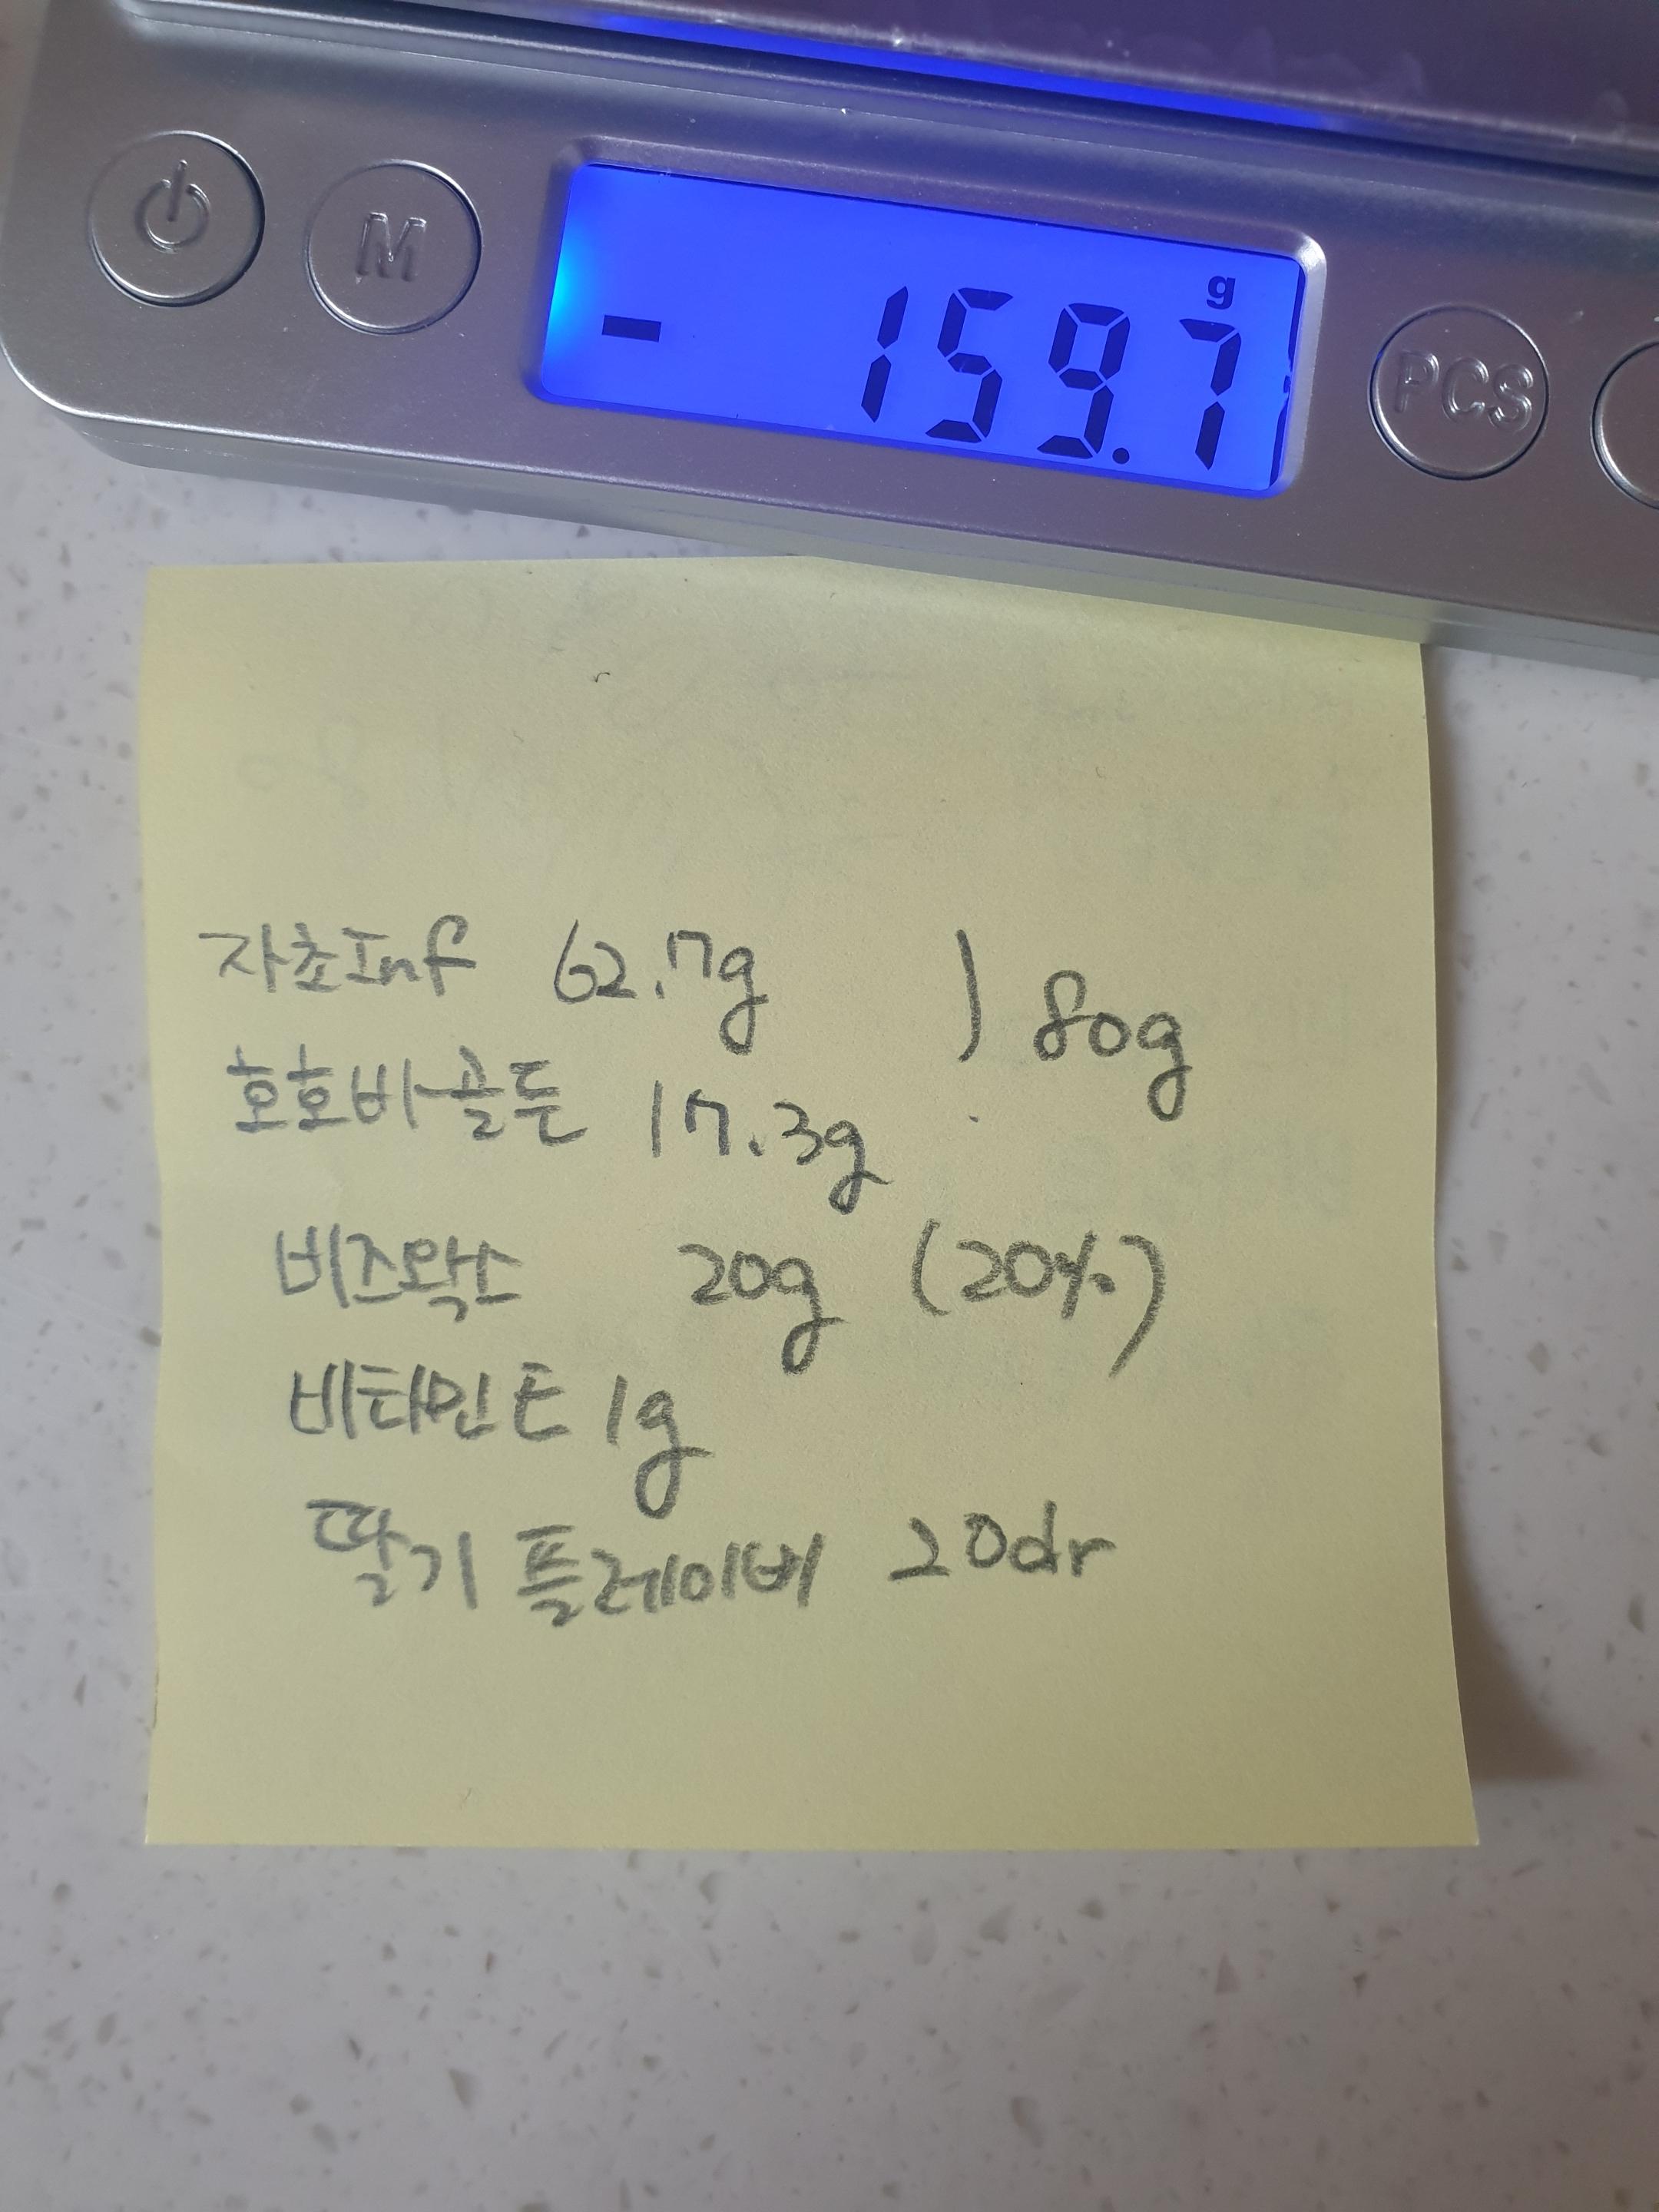 M
g
- 159.7
PCS
자초Inf 62.7g
) 80g
호호바골든 17.3g
비즈왁스 20g (20%)
비타민E 1g
딸기 플레이버 20dr